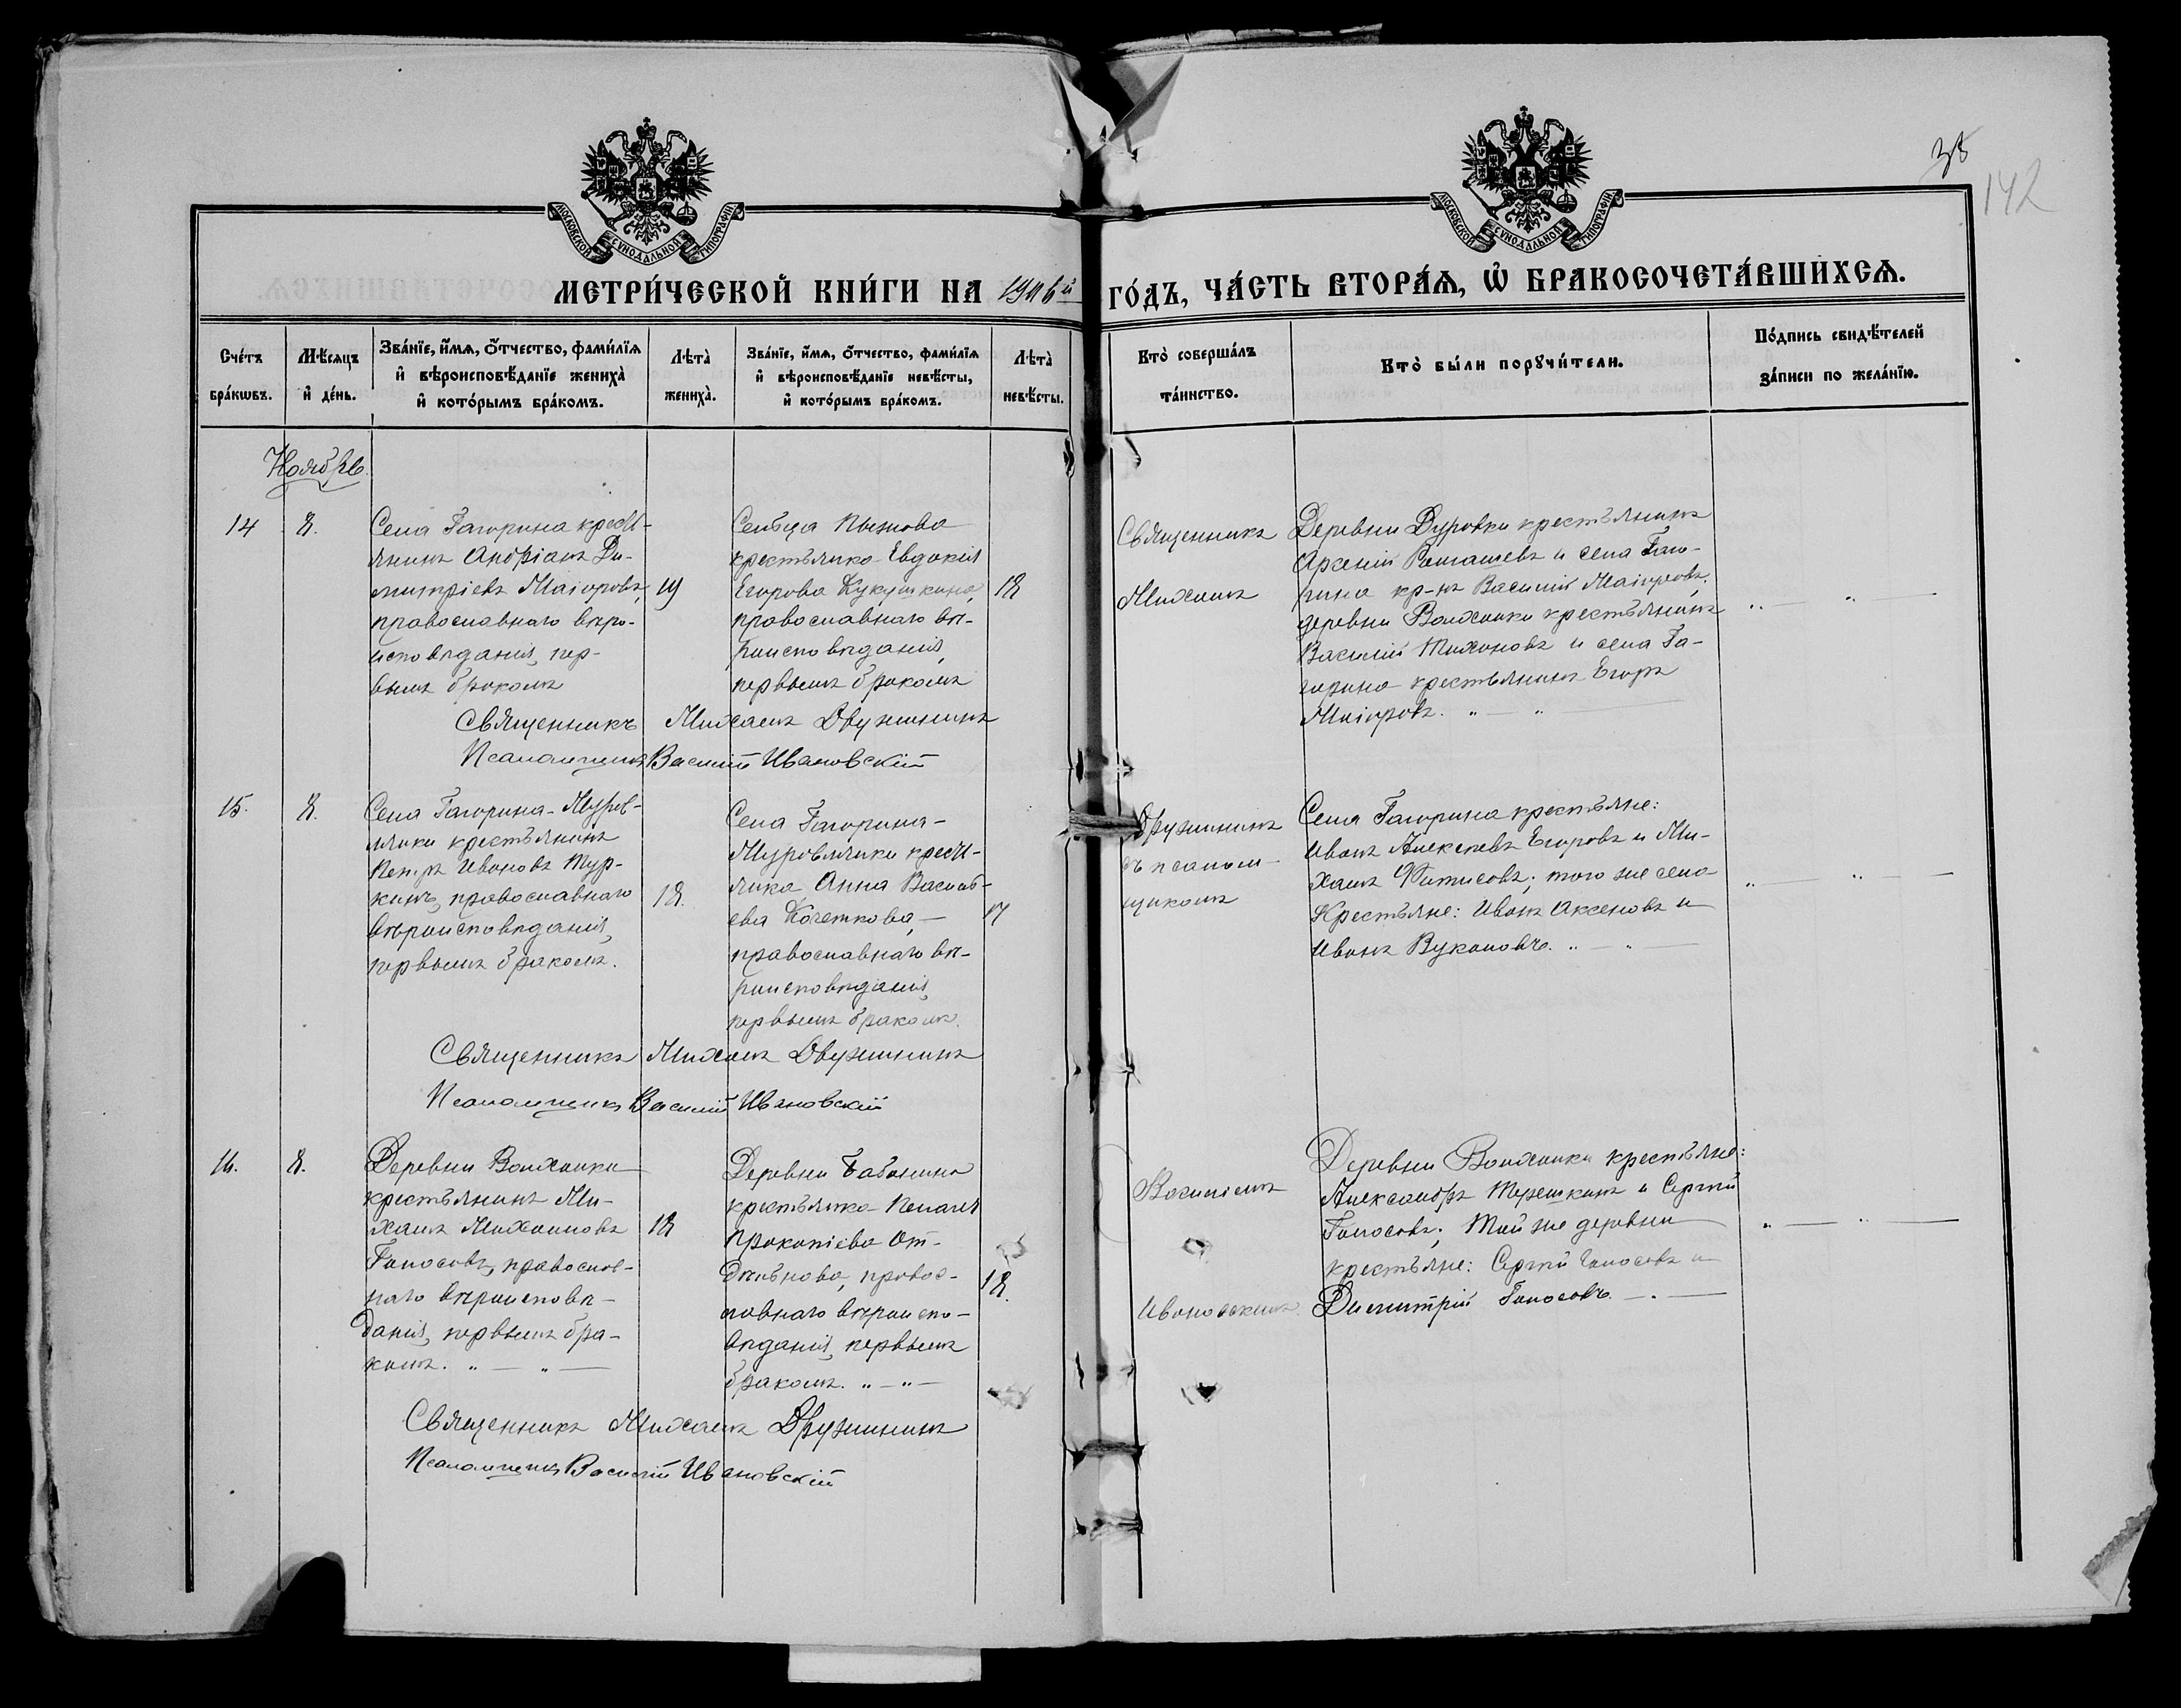 38
142
МОСКОВСКОЙ СУНОДАЛЬНОЙ ТИПОГРАФІИ
МОСКОВСКОЙ СУНОДАЛЬНОЙ ТИПОГРАФІИ
МЕТРИ́ЧЕСКОЙ КНИ́ГИ НА 1906й ГО́ДЪ, ЧА́СТЬ ВТОРА́Ѧ, Ѡ҆ БРАКОСОЧЕТА́ВШИХСѦ.
Сче́тъ
бра́кѡвъ.
Мѣ́сѧцъ
и҆ де́нь.
Зва́нїе, и҆́мѧ, ѻ҆́тчество, фами́лїѧ
и҆ вѣроисповѣ́данїе жениха̀
и҆ кото́рымъ бра́комъ.
Лѣта̀
жениха̀.
Зва́нїе, и҆́мѧ, ѻ҆́тчество, фами́лїѧ
и҆ вѣроисповѣ́данїе невѣ́сты,
и҆ кото́рымъ бра́комъ.
Лѣта̀
невѣ́сты.
Кто̀ соверша́лъ
та́инство.
Кто̀ бы́ли порꙋчи́тели.
По́дпись свидѣ́телей
за́писи по жела́нїю.
Ноябрь.
14
8.
Села Гагорина кресть-
янинъ Андріанъ Ди-
митріевъ Маіоровъ,
православнаго вѣро-
исповѣданія, пер-
вымъ бракомъ
19
Сельца
крестьянка Евдокія
Егорова Кукушкина,
православнаго вѣ-
роисповѣданія,
первымъ бракомъ
18
Священникъ
Михаилъ
Деревни Дуровки крестьянинъ
Арсеній Ромашевъ и села Гаго-
рина кр-нъ Василій Маіоровъ,
деревни Волхонки крестьянинъ
Василій Тихоновъ и села Га-
горина крестьянинъ Егоръ
Маіоровъ. „ — „ —
„ — „ —
Священникъ Михаилъ Дружининъ
Псаломщикъ Василій Ивановскій
15.
8.
Села Гагорина-Муров-
лянки крестьянинъ
Петръ Ивановъ Тур-
кинъ, православнаго
вѣроисповѣданія,
первымъ бракомъ.
18.
Села Гагорина-
Муровлянки кресть-
янка Анна Василь-
ева Кочеткова, —
православнаго вѣ-
роисповѣданія,
первымъ бракомъ.
17
Дружининъ
съ псалом-
щикомъ
Села Гагорина крестьяне:
Иванъ Алексѣевъ Егоровъ и Ми-
хаилъ Фитисовъ; того же села
Крестьяне: Иванъ Аксеновъ и
Иванъ Вукаловъ. „ — „ —
„ — „ —
Священникъ Михаилъ Дружининъ
Псаломщикъ Василій Ивановскій
16.
8.
Деревни Волхонки
крестьянинъ Ми-
хаилъ Михаиловъ
Голосовъ, православ-
наго вѣроисповѣ-
данія, первымъ бра-
комъ. „ — „ —
18
Деревни Бабанина
крестьянка Пелагія
Прокопіева От-
дѣльнова, правос-
лавнаго вѣроиспо-
вѣданія, первымъ
бракомъ. „ — „ —
18.
Василіемъ
Ивановскимъ.
Деревни Волхонки крестьяне:
Александръ Терешкинъ и Сергѣй
Голосовъ; Той же деревни
крестьяне: Сергѣй Голосовъ и
Димитрій Голосовъ. — „ —
„ — „ —
Священникъ Михаилъ Дружининъ
Псаломщикъ Василій Ивановскій